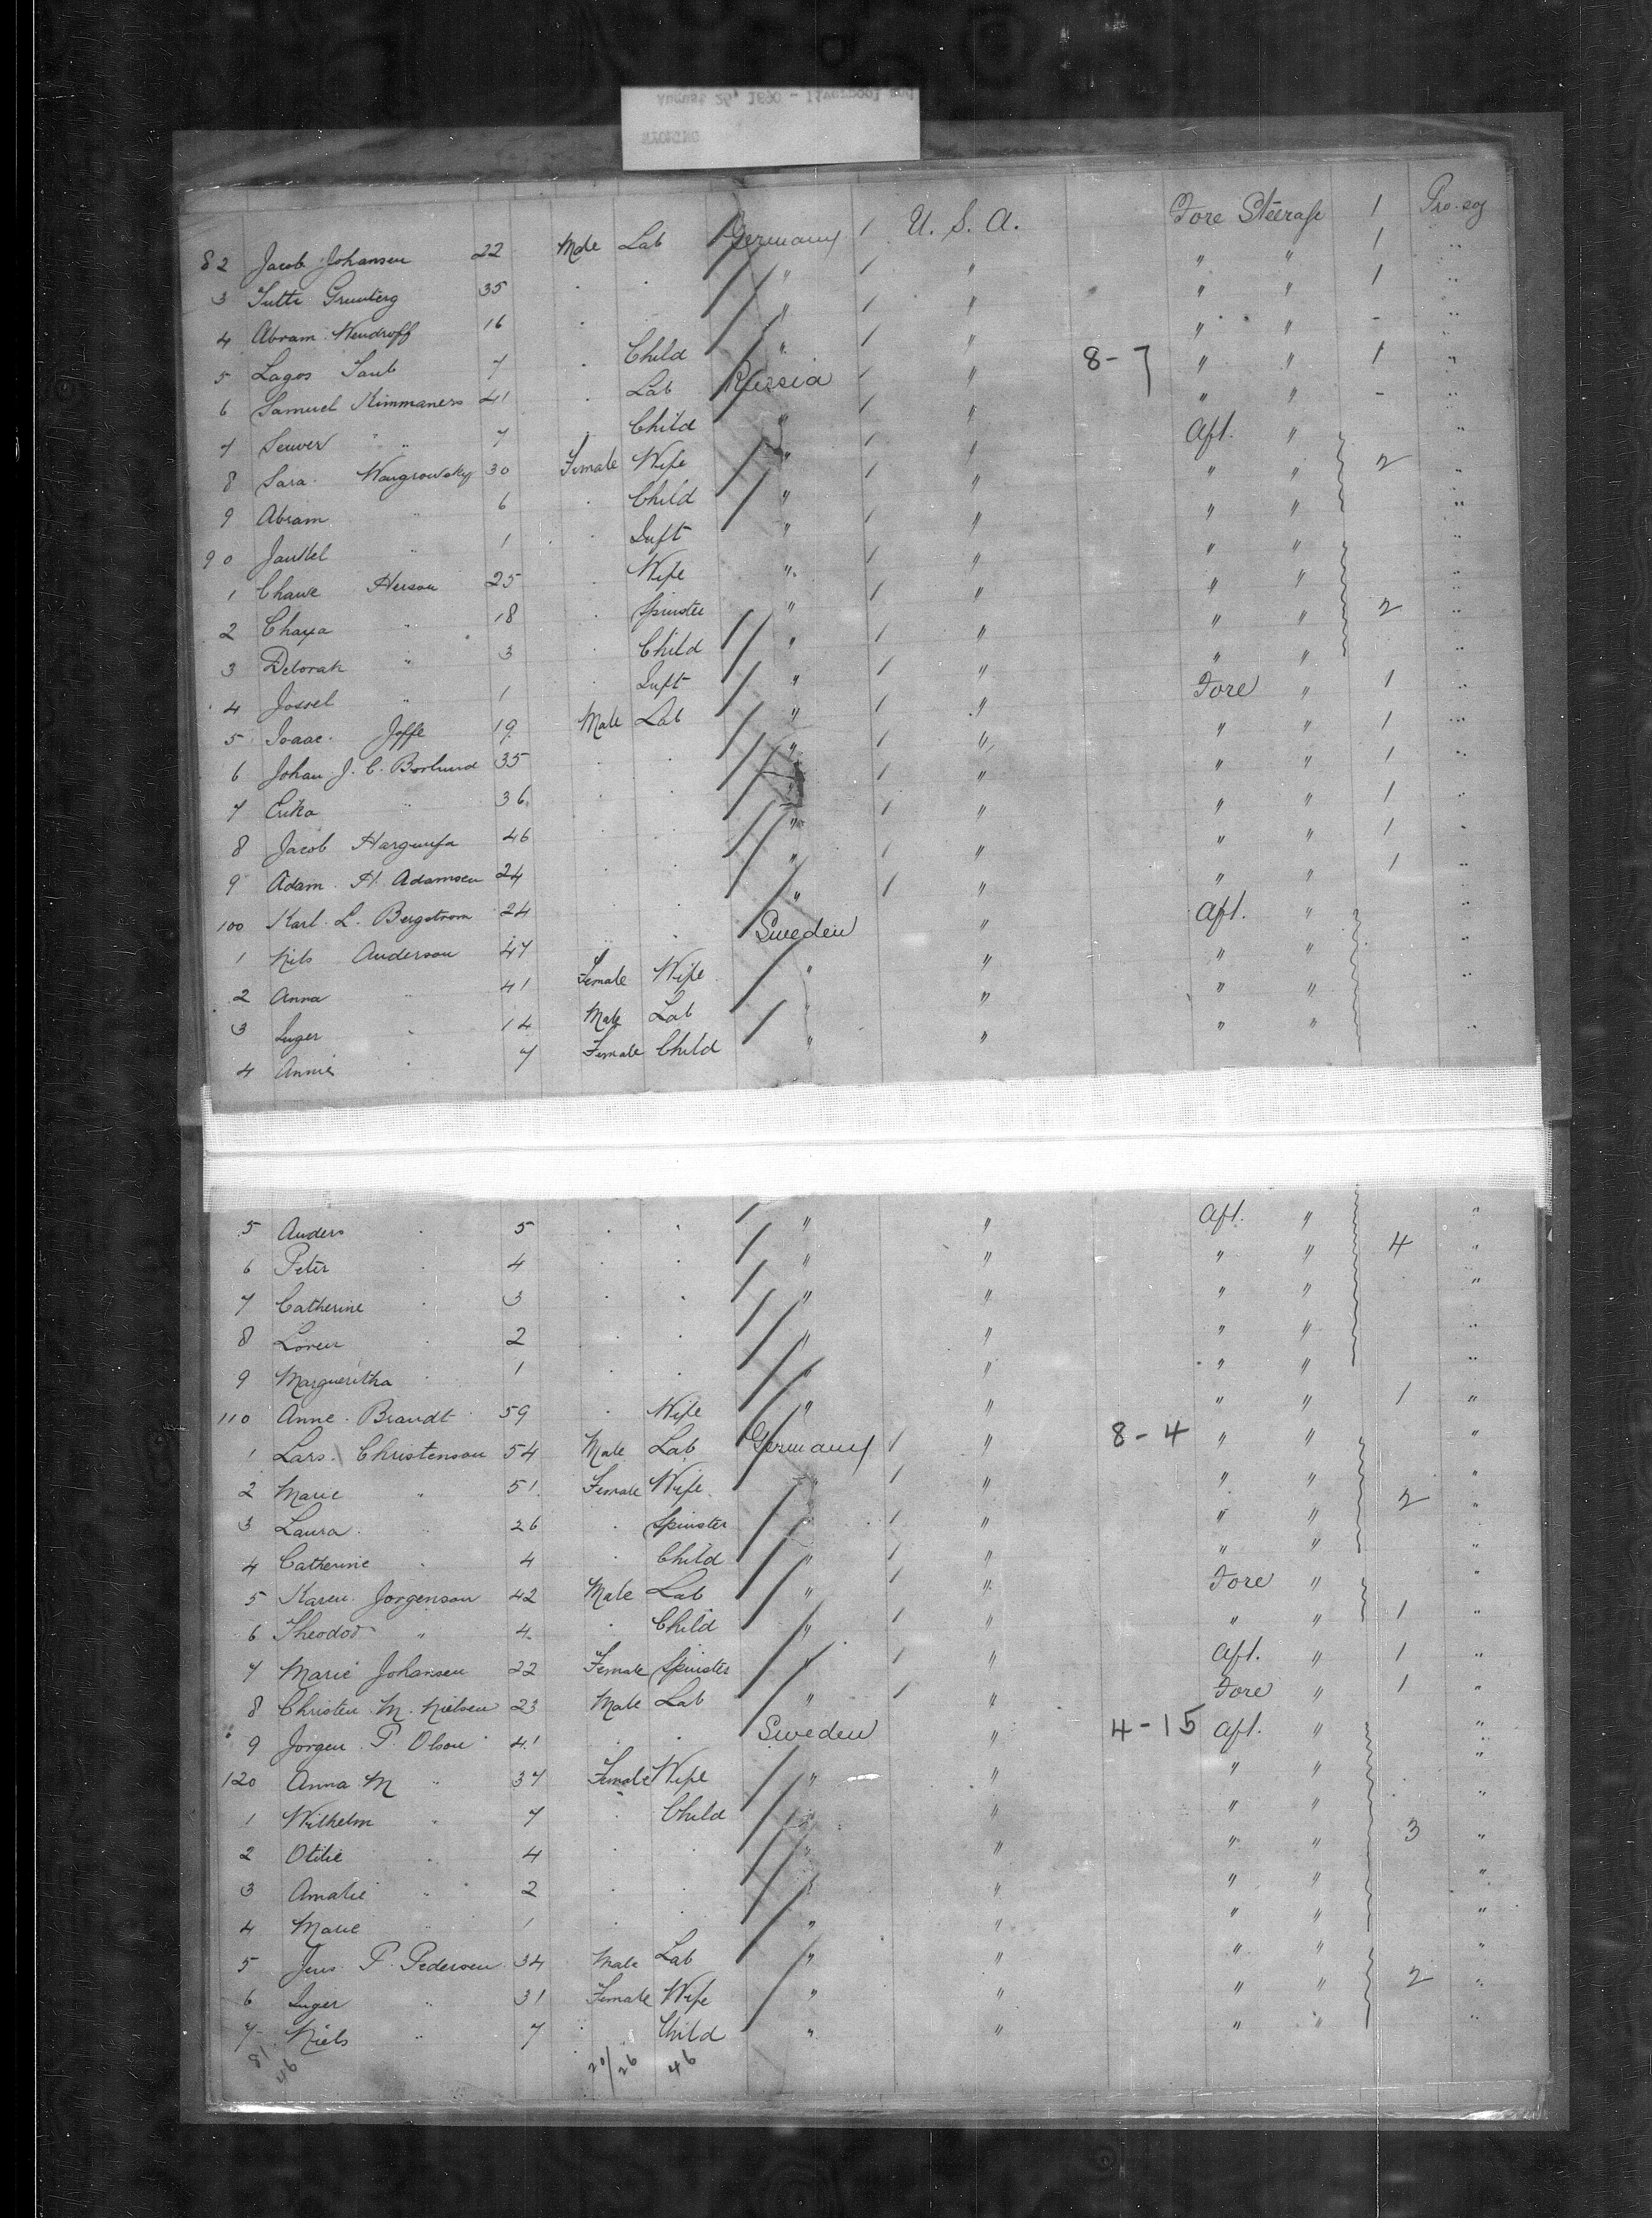 August 25, 1890 - Liverpool and
WYOMING
82 Jacob Johansen 22 Male Lab Germany / U. S. A. Fore Steerage 1 Pro. eog
3 Grunberg 35 · · " / " " " 1 "
4 Abram Wendroff 16 · · " / " " " 1 "
5 Lagos Taub 7 · Child " / " " " - "
6 Samuel Kimmaners 41 · Lab Russia / " 8-7 " " 1 "
7 " 7 · Child " / " " " - "
8 Sara Wangrowsky 30 Female Wife " / " Aft. " "
9 Abram " 6 · Child " / " " " 2 "
90 Jankel " 1 · Inft " / " " " "
1 Chawe Herson 25 · Wife " / " " " "
2 Chaya " 18 · Spinster " / " " " "
3 Deborah " 3 · Child " / " " " 2 "
4 Jossel " 1 · Inft " / " " " "
5 Isaac Joffe 19 Male Lab " / " Fore " 1 "
6 Johan J. C. Borlund 35 · · " / " " " 1 "
7 Erika " 36 · · " / " " " 1 "
8 Jacob 46 · · " / " " " 1 "
9 Adam H. Adamsen 24 · · " / " " " 1 "
100 Karl L. Bergstrom 24 · · " / " " " 1 "
1 Nils Anderson 47 · · Sweden " Aft. " "
2 Anna " 41 Female Wife " " " " "
3 Inger " 14 Male Lab " " " " "
4 Annie " 7 Female Child " " " " "
5 Anders · 5 · · " " Aft. " "
6 Peter · 4 · · " " " " 4 "
7 Catherine · 3 · · " " " " "
8 Loren · 2 · · " " " " "
9 Margueritha · 1 · · " " " " "
110 Anne Brandt 59 · Wife " " " " 1 "
1 Lars Christenson 54 Male Lab Germany / " 8-4 " " "
2 Marie " 51 Female Wife " / " " " "
3 Laura " 26 · Spinster " / " " " 2 "
4 Catherine " 4 · Child " / " " " "
5 Karen Jorgenson 42 Male Lab " / " Fore " "
6 Theodor " 4 · Child " / " " " 1 "
7 Marie Johansen 22 Female Spinster " / " Aft. " 1 "
8 Christen M. Nielsen 23 Male Lab " / " Fore " 1 "
9 Jorgen P. Olson 41 · · Sweden " 4-15 Aft. " "
120 Anna M " 37 Female Wife " " " " "
1 Wilhelm " 7 · Child " " " " "
2 Otilie " 4 · · " " " " 3 "
3 Amalie " 2 · · " " " " "
4 Marie " 1 · · " " " " "
5 Jens P. Pedersen 34 Male Lab " " " " "
6 Inger " 31 Female Wife " " " " 2 "
7 Niels " 7 · Child " " " " "
81 46 20/26 46